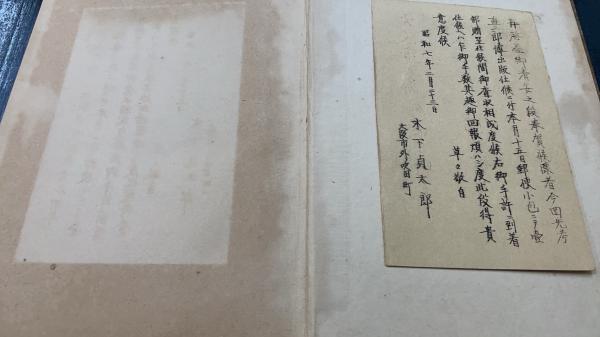 拝啓益御清安之段奉賀候陳者今回先考
直二郎傳出版仕候ニ付本月十五日郵便小包ニテ壹
部贈呈仕候間御査収相成度候右御手許ニ到着
仕候ハヾ乍御手数其趣御回報煩ハシ度此段得貴
意度候 草々敬白
昭和七年二月二十三日
木下貞太郎
大阪市外吹田町